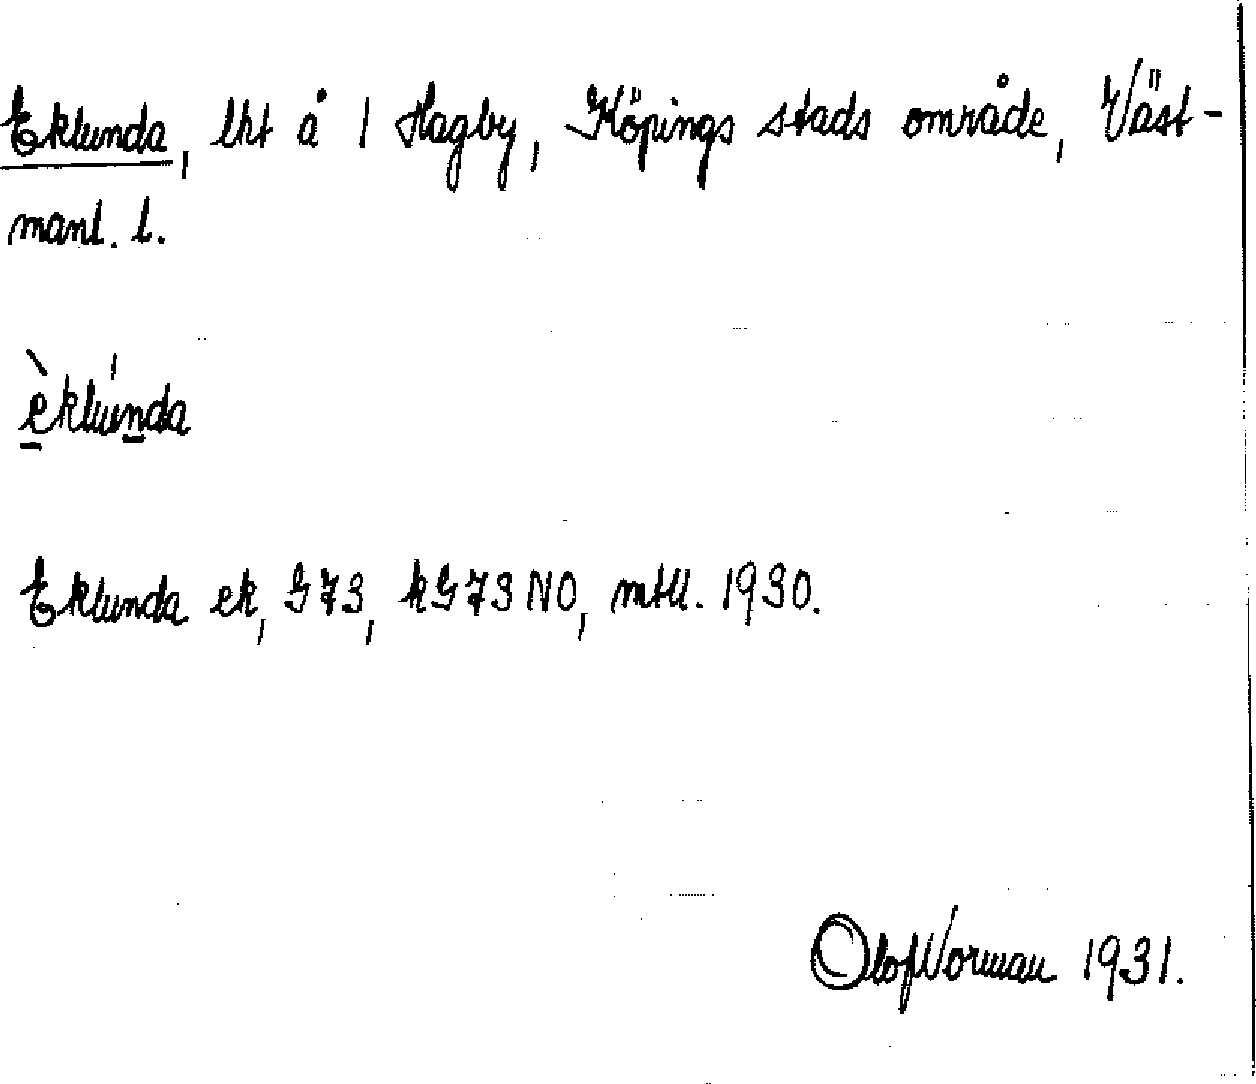 Eklunda, lht å 1 Hagby, Köpings stads område, Väst-
manl. l.
èklúnda
Eklunda ek, G73, kG73NO, mtll. 1930.
Olof Norman 1931.